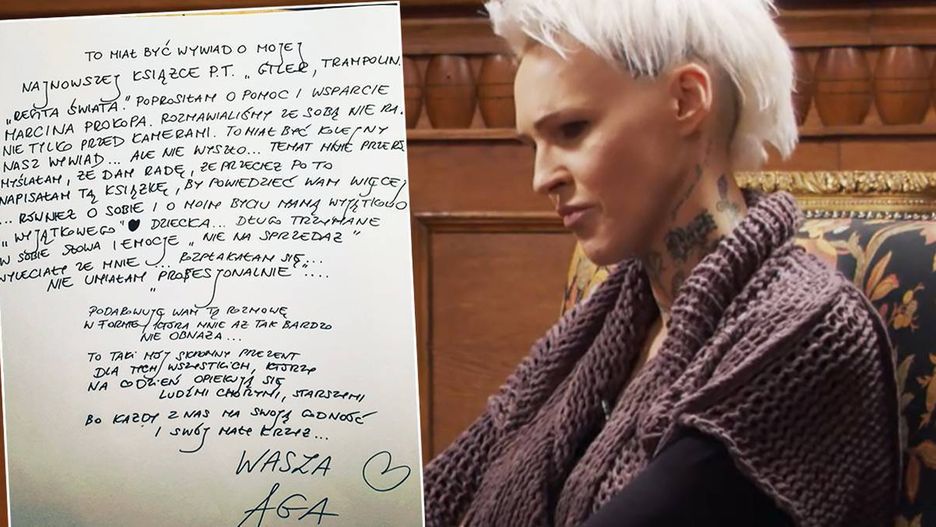 TO MIAŁ BYĆ WYWIAD O MOJEJ
NAJNOWSZEJ KSIĄŻCE P.T. „GILER, TRAMPOLIN
„RESZTA ŚWIATA." POPROSIŁAM O POMOC I WSPARCIE
MARCINA PROKOPA. ROZMAWIALIŚMY ZE SOBĄ NIE RA
NIE TYLKO PRZED KAMERAMI. TO MIAŁ BYĆ KOLEJNY
NASZ WYWIAD... ALE NIE WYSZŁO... TEMAT MNIE PRZERS
MYŚLAŁAM, ŻE DAM RADĘ, ŻE PRZECIEŻ PO TO
NAPISAŁAM TĄ KSIĄŻKĘ, BY POWIEDZIEĆ WAM WIĘCEJ
... RÓWNIEŻ O SOBIE I O MOIM BYCIU MAMĄ WYJĄTKOWO
„WYJĄTKOWEGO" DZIECKA... DŁUGO TRZYMANE
W SOBIE SŁOWA I EMOCJE „NIE NA SPRZEDAŻ"
WYLECIAŁY ZE MNIE... ROZPŁAKAŁAM SIĘ...
NIE UMIAŁAM „PROFESJONALNIE"....
PODAROWUJĘ WAM TĄ ROZMOWĘ
W FORMIE, KTÓRA MNIE AŻ TAK BARDZO
NIE OBNAŻA...
TO TAKI MÓJ SKROMNY PREZENT
DLA TYCH WSZYSTKICH, KTÓRZY
NA CODZIEŃ OPIEKUJĄ SIĘ
LUDŹMI CHORYMI, STARSZYMI
BO KAŻDY Z NAS MA SWOJĄ GODNOŚĆ
I SWÓJ MAŁY KRZYŻ...
WASZA
AGA